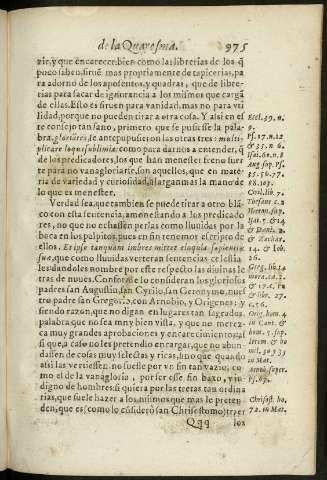 de la Quaresma. 975
zir, y que encarecer: bien como las librerias de los q̃
poco saben, siruẽ mas propriamente de tapicerias, pa
ra adorno de los aposentos, y quadras, que de libre-
rias para sacar de ignorancia a los mismos que cargã
de ellas. Esto es siruen para vanidad, mas no para vti
lidad, porque no pueden tirar a otra cosa. Y assi en el
te consejo tan sano, primero que se pusiesse la pala-
bra, gloriantes, se antepusieron las otras tres: multi-
plicare loqui sublimia: como para darnos a entender, q̃
de los predicadores, los que han menester freno fuer
te para no vanagloriarse, son aquellos, que en mate-
ria de variedad y curiosidad, alargan mas la mano de
lo que es menester.
Verdad sea, que tambien se puede tirar a otro blã
co con esta sentencia, amonestando a los predicado
res, no que no echassen perlas como lluuidas por la
boca en los pulpitos, pues en
ellos. Et ipse tanquam imbres mittet eloquia sapientiæ
suæ, que como lluuidas verteran sentencias celestia
les, dandoles nombre por este respecto las diuinas le
tras de nuues. Conforme lo consideran los gloriosos
padres san Augustin, san Cyrilo, san Geronymo, nues
tro padre san Gregorio, con Arnobio, y Origenes: y
siendo razon, que no digan en lugares tan sagrados,
palabra, que no sea muy bien vista, y que no merez-
ca muy grandes aprobaciones y encarecimientos: al
si que, a caso no les pretendio encargar, que no abun
dassen de cosas muy selectas y ricas, sino que quando
assi las vertiessen no fuesse por vn fin tan vazio, co
mo el de la vanagloria, por ser esse fin baxo, y in-
digno de hombres, si quiera por las tretas tan ordina
rias, que suele hazer a los mismos que mas le preten-
den, que es (como lo cõsiderò san Chrisostomo) traer
Qqq los
Eccl. 39. n.
9.
Ps. 17. n. 12
& 35. n. 6.
Isai. 60. n. 8
Aug. sup. Ps.
35. 56. 77.
88. 103.
Ciril. lib. 7.
Hieron. sup.
Isai. 5. & 14
& Zachar.
14. & Iob.
26.
27. c. 6.
Orig. hom. 4
in Cant. &
in Mat.
Ps. 67.
Chrisost. ho.
72. in Mat.